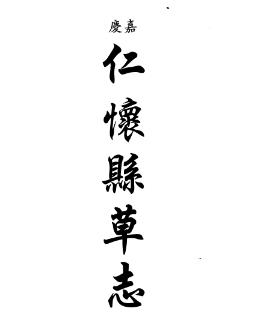 嘉慶
仁懷縣草志